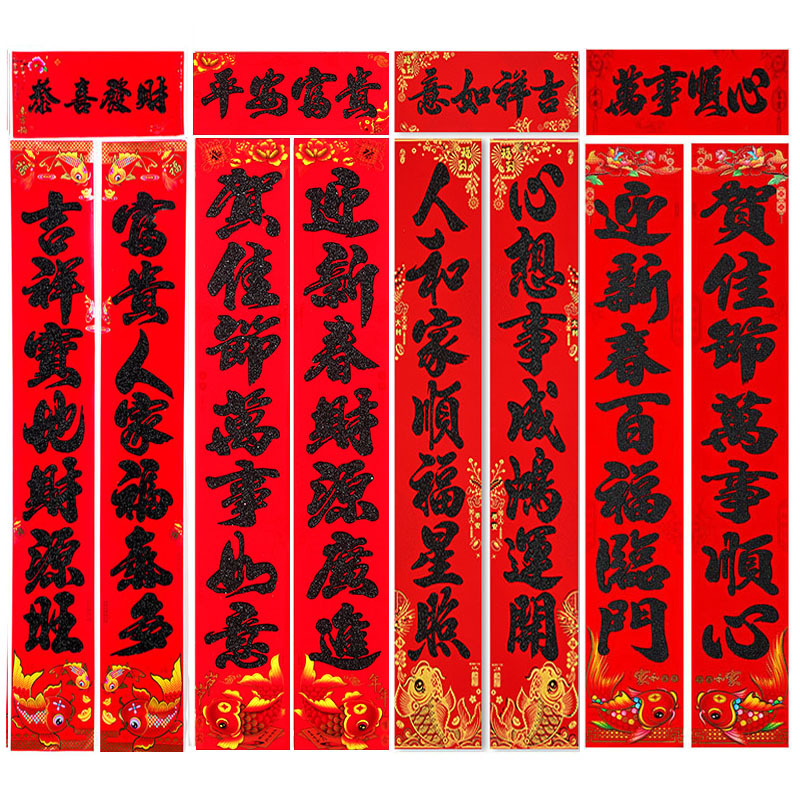 恭喜發財
吉祥寶地財源旺
富貴人家福泰多
平安富貴
賀佳節萬事如意
迎新春財源廣進
意如祥吉
人和家順福星照
心想事成鴻運開
萬事順心
迎新春百福臨門
賀佳節萬事順心